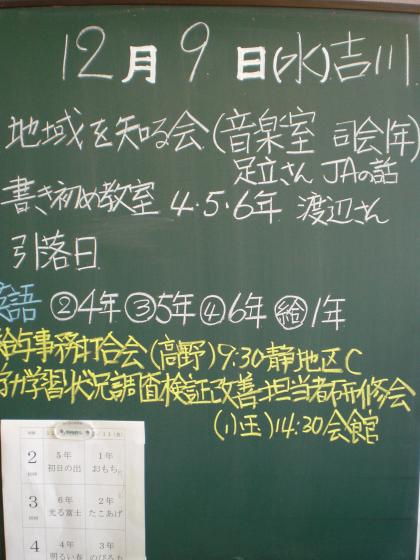 12月9日(水)吉川
地域を知る会(音楽室 司会1年)
足立さん JAの話
書き初め教室 4・5・6年 渡辺さん
引落日
英語 ②4年 ③5年 ④6年 ㊕1年
給与事務打合会(高野)9:30静地区C
学習状況調査検証改善担当者研修会
(小玉)14:30会館
2 5年 1年
初日の出 おもち。
3 6年 2年
光る富士 たこあげ
4 4年 3年
明るい春